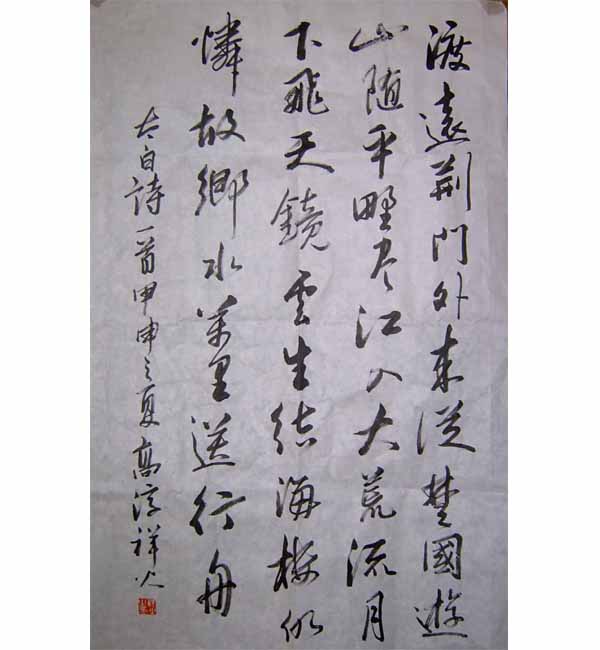 渡遠荊門外来從楚國遊
山随平野尽江入大荒流月
下飛天鏡雲生结海楼仍
憐故鄉水萬里送行舟
太白詩一首甲申之夏高淳祥